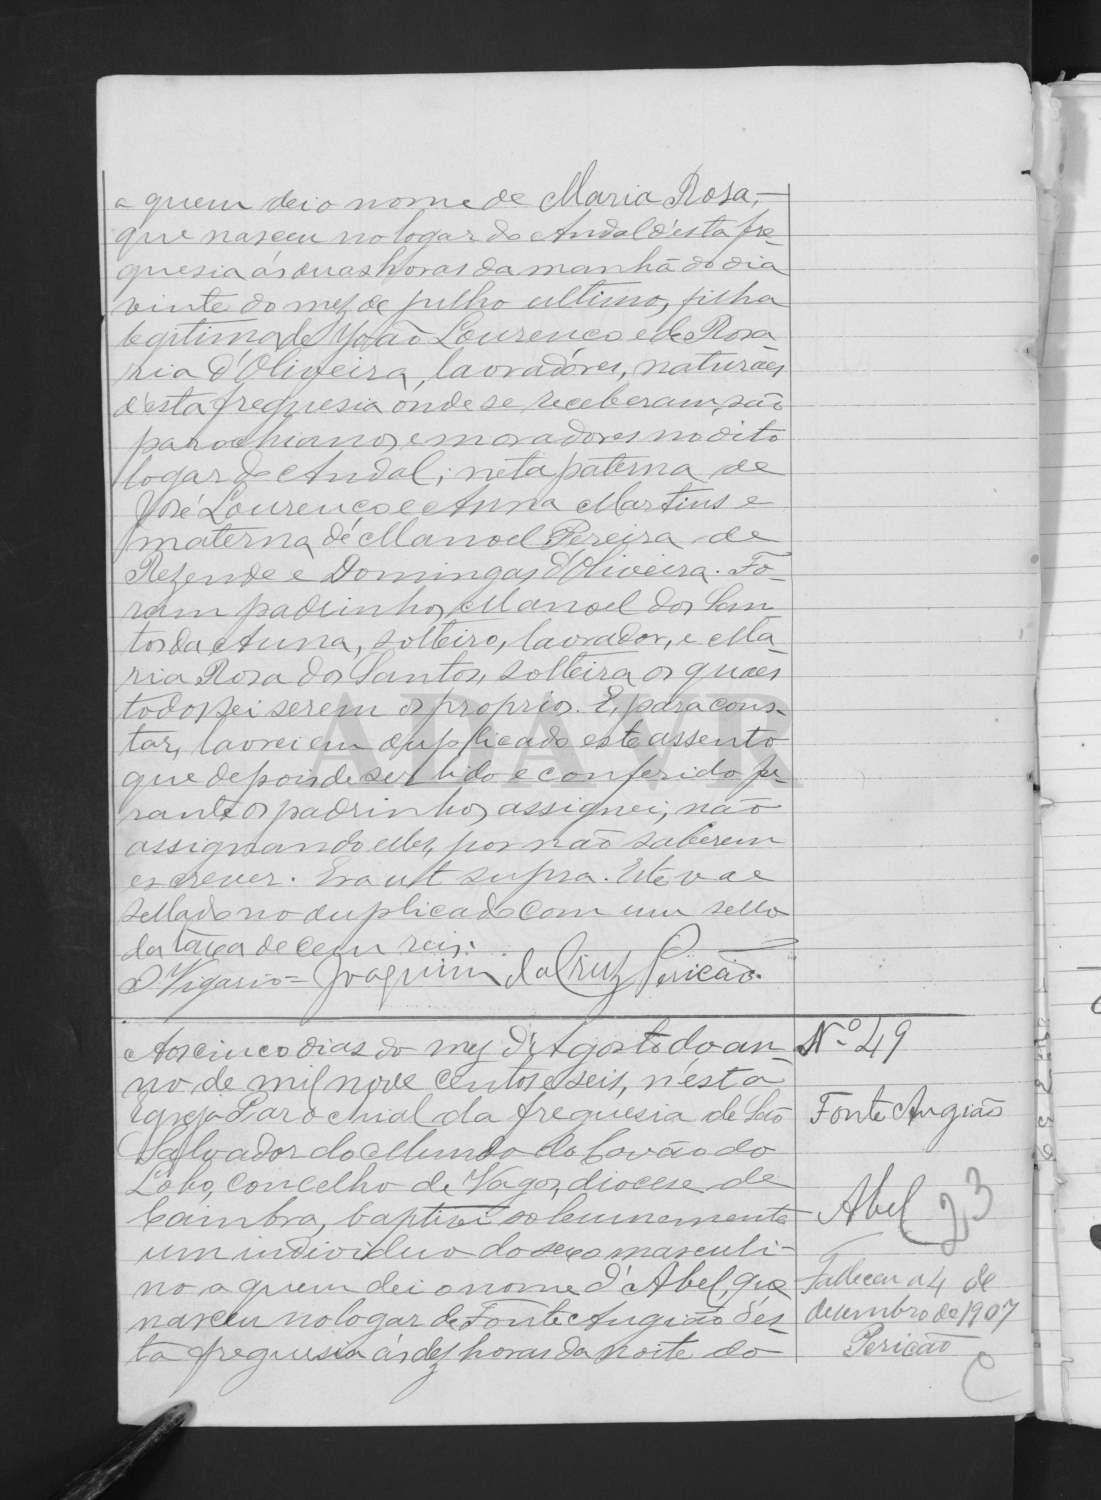 a quem dei o nome de Maria Rosa,
que nasceu no logar do Andal d'esta fre-
guesia ás duas horas da manhã do dia
vinte do mez de julho ultimo, filha
legitima de João Lourenço e de Rosa
Maria d'Oliveira, lavradôres, naturaes
d'esta freguesia onde se receberam, são
parochianos e moradores no dito
logar do Andal; neta paterna de
José Lourenço e Anna Martins e
materna de Manoel Pereira de
Rezende e Domingas d'Oliveira. Fo-
ram padrinhos, Manoel dos San
tos da Anna, solteiro, lavrador, e Ma-
ria Rosa dos Santos, solteira os quaes
todos sei serem os proprios. E, para cons-
tar, lavrei em duplicado este assento
que depois de ser lido e conferido pe-
rante os padrinhos, assignei, não
assignando elles, por não saberem
escrever. Era ut supra. Este vae
sellado no duplicado com um sello
da taxa de cem reis.
O Vigario = Joaquim da Cruz Pericão.
Aos cinco dias do mez d'Agosto do an-
no de mil nove centos e seis, n'esta
Igreja Parochial da freguesia de São
Salvador do Mundo do Covão do
Lobo, concelho de Vagos, diocese de
Coimbra, baptizei solemnemente
um individuo do sexo masculi-
no a quem dei o nome d'Abel, que
nasceu no logar de Fonte Angião d'es-
ta freguesia ás dez horas da noite do
Nº 49
Fonte Angião
Abel 23
Falleceu a 4 de
dezembro de 1907
Pericão
C
ADAVR